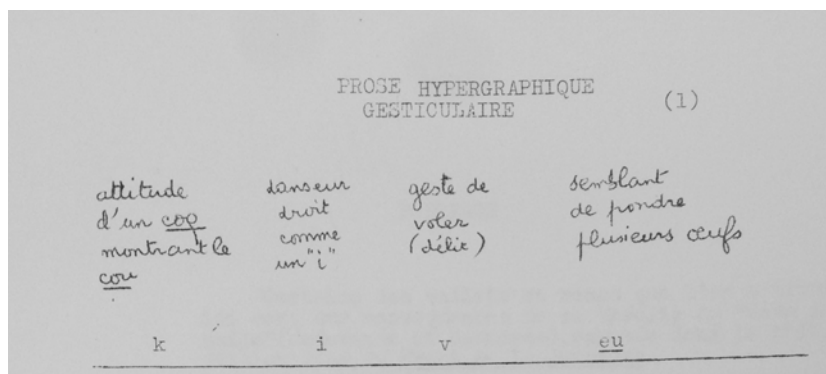 PROSE HYPERGRAPHIQUE
GESTICULAIRE (1)
attitude
d'un coq
montrant le
cou
danseur
droit
comme
un "i"
geste de
voler
(délit)
semblant
de pondre
plusieurs œufs
k i v eu